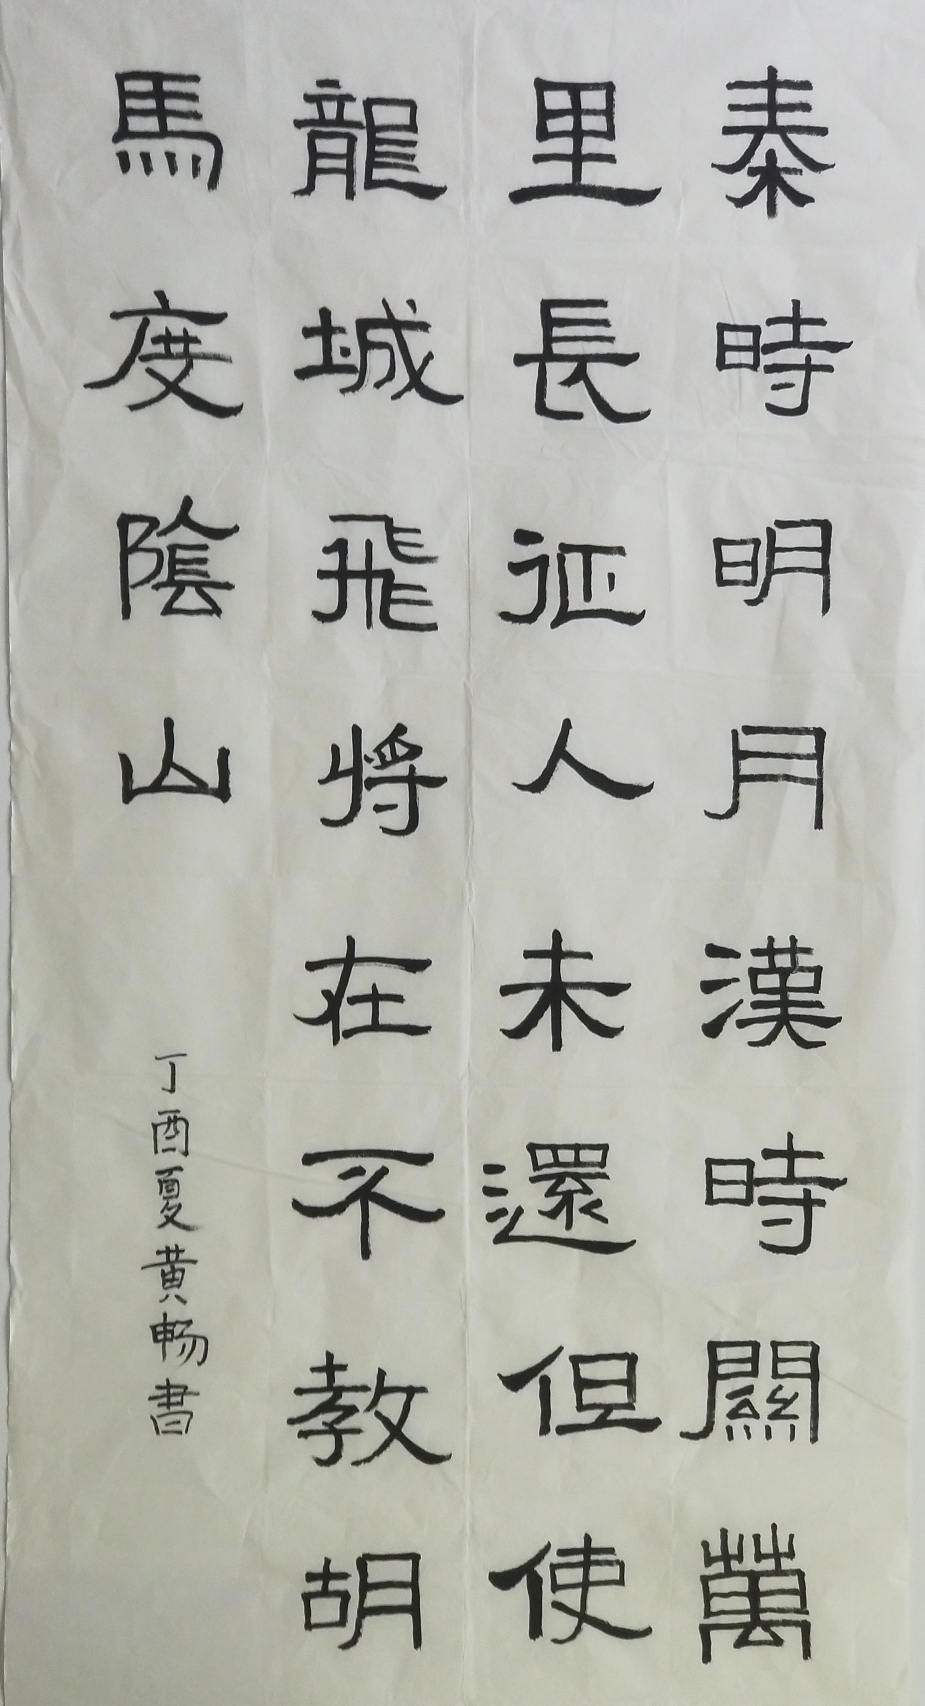 秦時明月漢時關萬
里長征人未還但使
龍城飛將在不教胡
馬度陰山
丁酉夏黄畅書